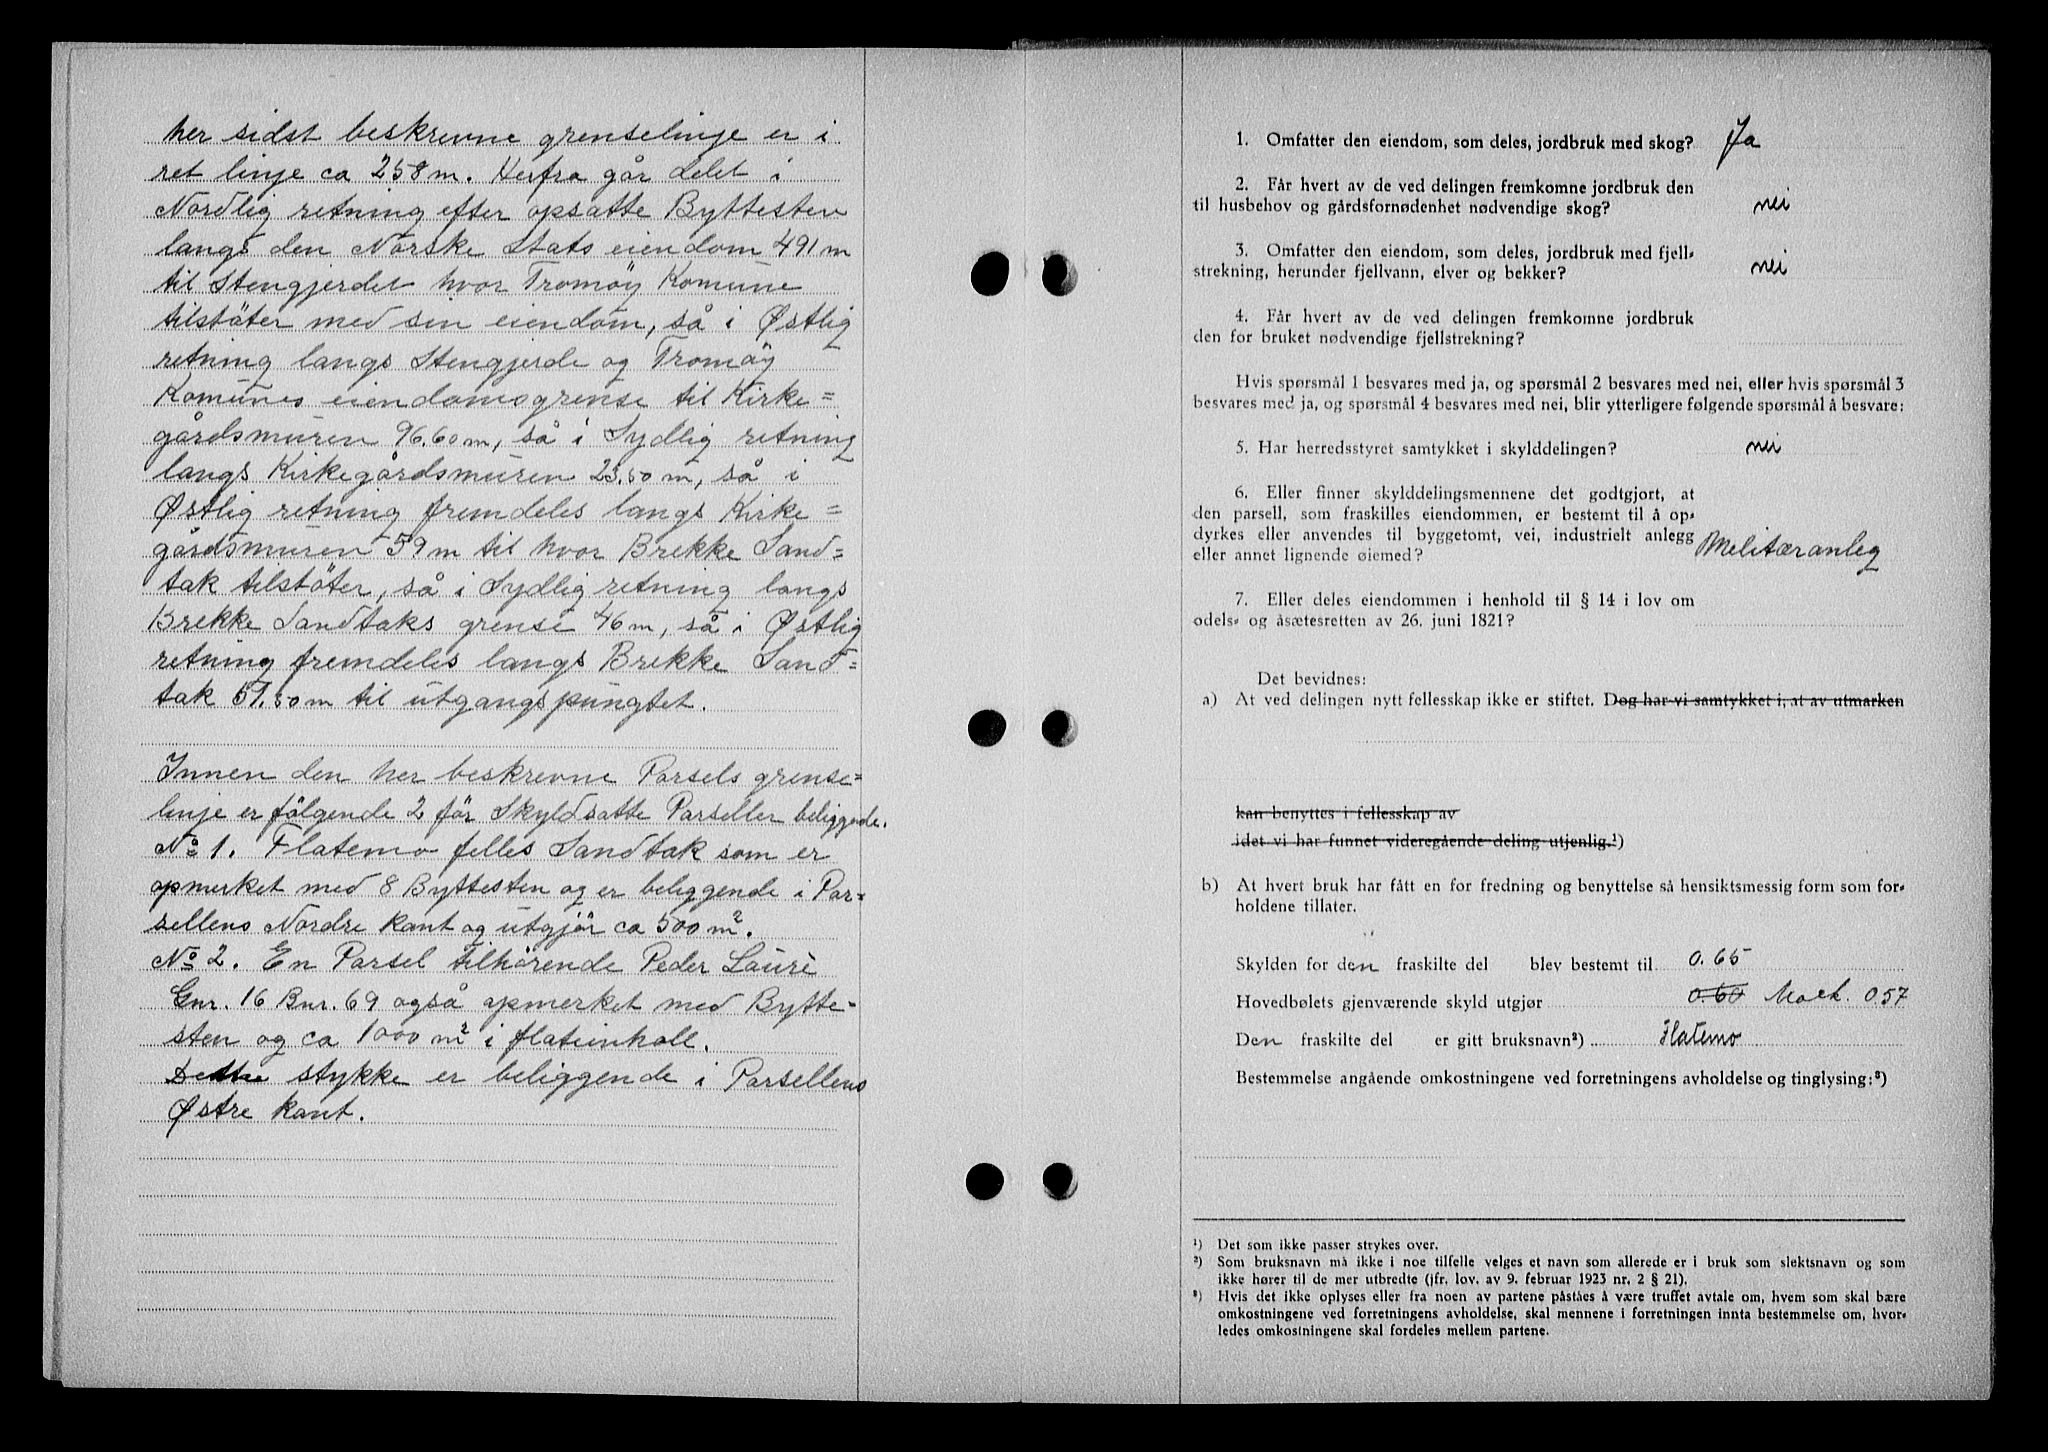 her sidst beskrevne grenselinje er i
ret linje ca 258 m. Herfra går delet i
Nordlig retning efter opsatte Byttesten
langs den Norske Stats eiendom 491 m
til Stengjerdet hvor Tromøy Komune
tilstøter med sin eiendom, så i Østlig
retning langs Stengjerde og Tromøy
Komunes eiendomsgrense til Kirke=
gårdsmuren 96.60 m, så i Sydlig retning
langs Kirkegårdsmuren 23.50 m, så i
Østlig retning fremdeles langs Kirke=
gårdsmuren 59 m til hvor Brekke Sand=
tak tilstøter, så i Sydlig retning langs
Brekke Sandtaks grense 46 m, så i Østlig
retning fremdeles langs Brekke Sand=
tak 57.50 m til utgangspungtet.
Innen den her beskrevne Parsels grense=
linje er følgende 2 før Skyldsatte Parseller beliggende.
No 1. Flatemo felles Sandtak som er
opmerket med 8 Byttesten og er beliggende i Par=
sellens Nordre kant og utgjør ca 500 m².
No 2. En Parsel tilhørende Peder Lauré
Gnr. 16 Bnr. 69 også opmerket med Bytte=
sten og ca 1000 m² i flateinholl.
Dette stykke er beliggende i Parsellens
Østre kant.
1. Omfatter den eiendom, som deles, jordbruk med skog? Ja
2. Får hvert av de ved delingen fremkomne jordbruk den
til husbehov og gårdsfornødenhet nødvendige skog? nei
3. Omfatter den eiendom, som deles, jordbruk med fjell=
strekning, herunder fjellvann, elver og bekker? nei
4. Får hvert av de ved delingen fremkomne jordbruk
den for bruket nødvendige fjellstrekning?
Hvis spørsmål 1 besvares med ja, og spørsmål 2 besvares med nei, eller hvis spørsmål 3
besvares med ja, og spørsmål 4 besvares med nei, blir ytterligere følgende spørsmål å besvare:
5. Har herredsstyret samtykket i skylddelingen? nei
6. Eller finner skylddelingsmennene det godtgjort, at
den parsell, som fraskilles eiendommen, er bestemt til å op=
dyrkes eller anvendes til byggetomt, vei, industrielt anlegg
eller annet lignende øiemed? Melitæranleg
7. Eller deles eiendommen i henhold til § 14 i lov om
odels= og åsætesretten av 26. juni 1821?
Det bevidnes:
a) At ved delingen nytt fellesskap ikke er stiftet. Dog har vi samtykket i, at av utmarken
kan benyttes i fellesskap av
idet vi har funnet videregående deling utjenlig.¹)
b) At hvert bruk har fått en for fredning og benyttelse så hensiktsmessig form som for=
holdene tillater.
Skylden for den fraskilte del blev bestemt til 0.65
Hovedbølets gjenværende skyld utgjør 0.60 Mark. 0.57
Den fraskilte del er gitt bruksnavn²) Flatemo
Bestemmelse angående omkostningene ved forretningens avholdelse og tinglysing:³)
¹) Det som ikke passer strykes over.
²) Som bruksnavn må ikke i noe tilfelle velges et navn som allerede er i bruk som slektsnavn og som
ikke hører til de mer utbredte (jfr. lov. av 9. februar 1923 nr. 2 § 21).
³) Hvis det ikke oplyses eller fra noen av partene påståes å være truffet avtale om, hvem som skal bære
omkostningene ved forretningens avholdelse, skal mennene i forretningen innta bestemmelse om, hvor=
ledes omkostningene skal fordeles mellem partene.